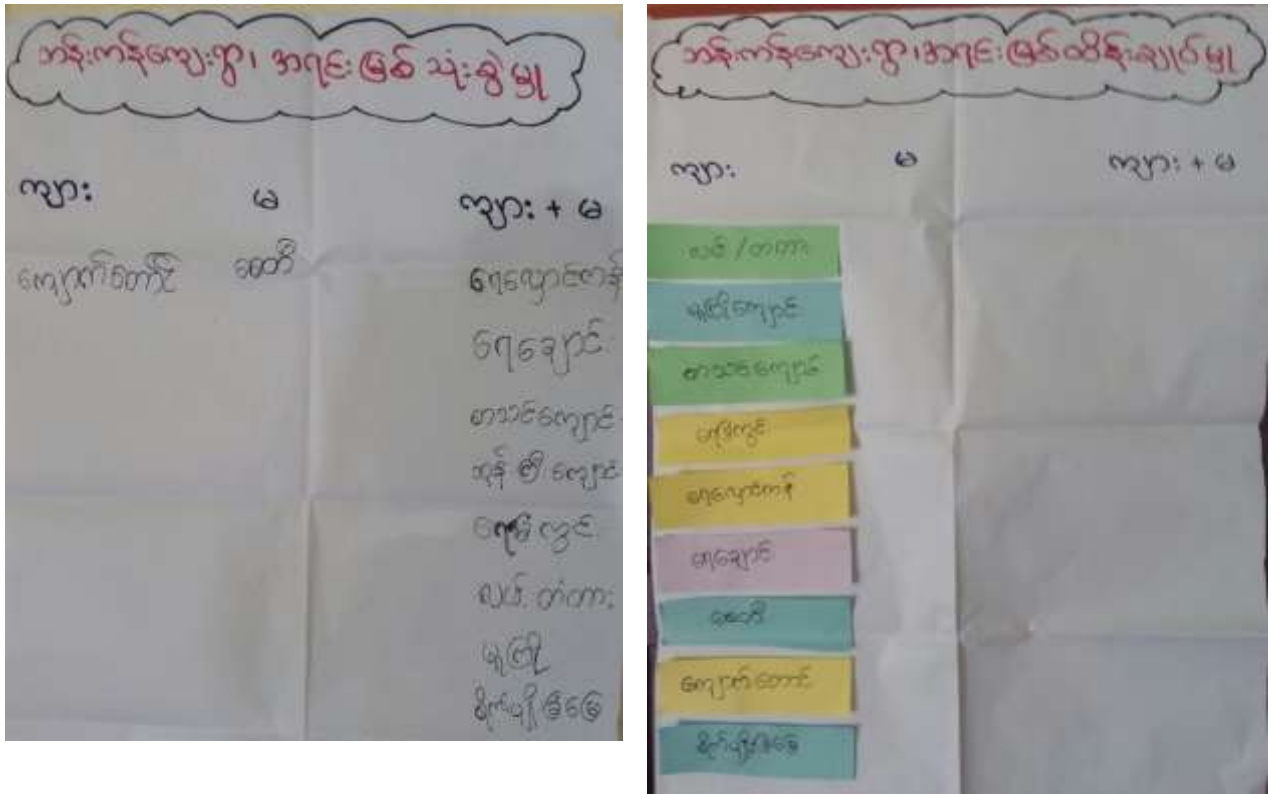 ဘန်းကန်ကျေးရွာ၊ အရင်းမြစ် သုံးစွဲမှု
ကျား မ ကျား + မ
ကျောက်တောင် စေတီ ရေလှောင်ကန်
ရေချောင်း
စာသင်ကျောင်း
ဘုန်းကြီးကျောင်း
ရေတွင်း
လမ်း တံတား
မူကြို
စိုက်ပျိုးမြေ
ဘန်းကန်ကျေးရွာ၊အရင်းမြစ်ထိန်းချုပ်မှု
ကျား မ ကျား + မ
လမ်း / တံတား
မူကြိုကျောင်း
စာသင်ကျောင်း
ရေတွင်း
ရေလှောင်ကန်
ရေချောင်း
စေတီ
ကျောက်တောင်
စိုက်ပျိုးမြေ